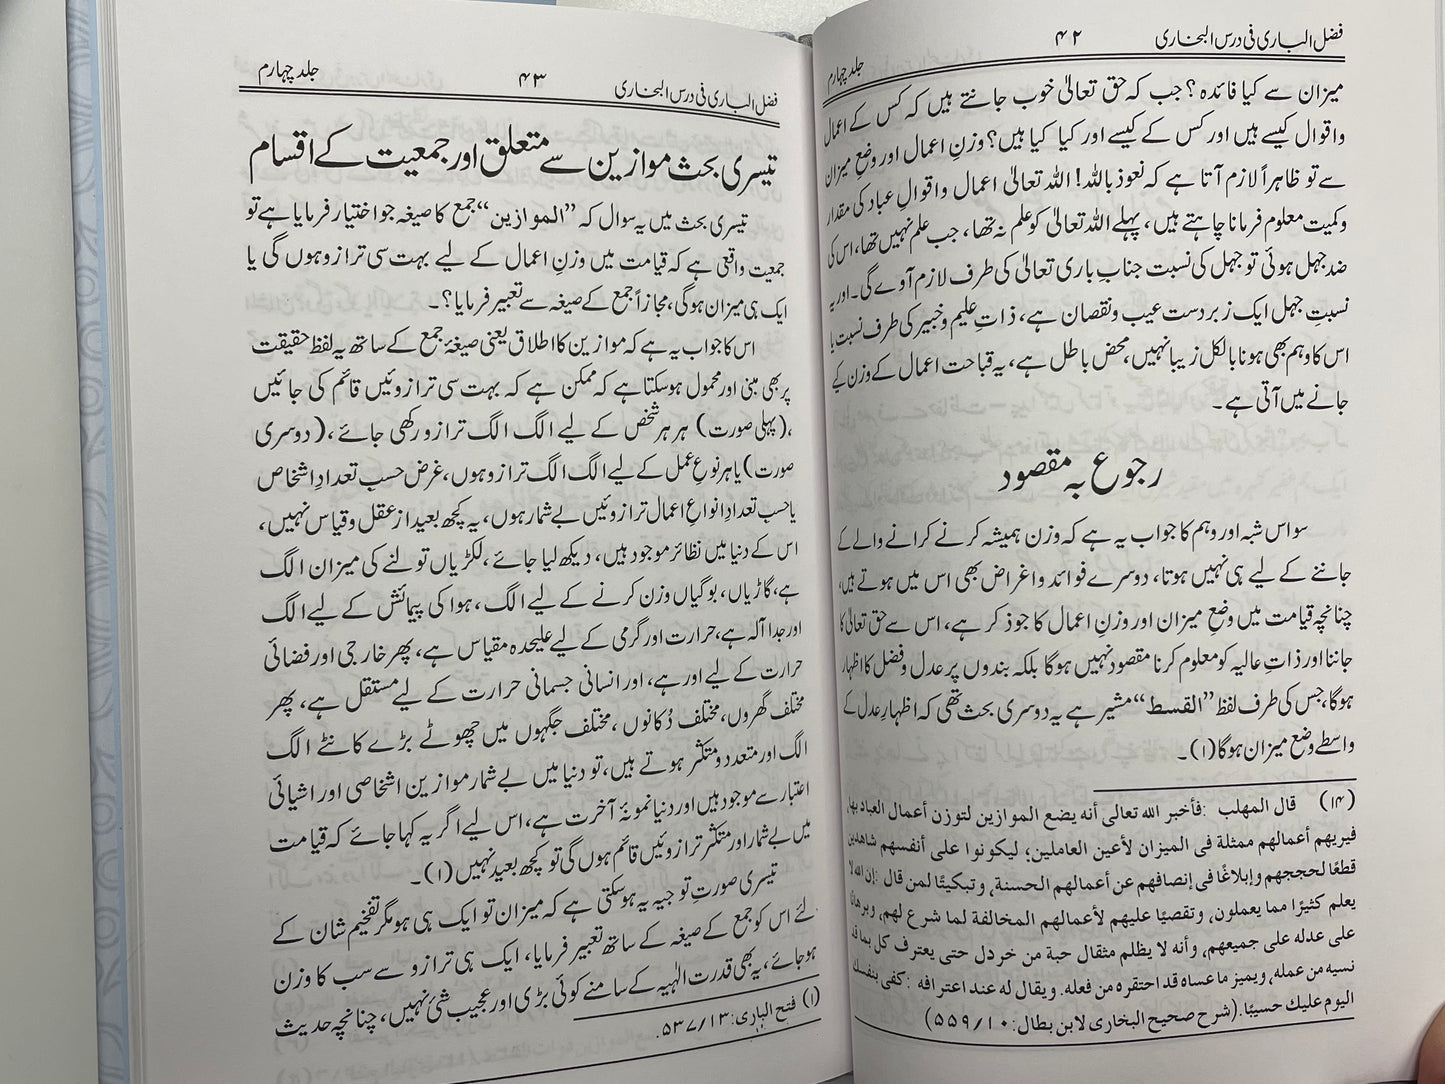 فضل الباری فی درس البخاری ۴۲ جلد چہارم
میزان سے کیا فائدہ؟ جب کہ حق تعالیٰ خوب جانتے ہیں کہ کس کے اعمال
واقوال کیسے ہیں اور کس کے کیسے اور کیا کیا ہیں؟ وزنِ اعمال اور وضعِ میزان
سے تو ظاہراً لازم آتا ہے کہ نعوذ باللہ! اللہ تعالیٰ اعمال واقوالِ عباد کی مقدار
وکمیت معلوم فرمانا چاہتے ہیں، پہلے اللہ تعالیٰ کو علم نہ تھا، جب علم نہیں تھا، اس کی
ضد جہل ہوئی تو جہل کی نسبت جنابِ باری تعالیٰ کی طرف لازم آوے گی۔ اور یہ
نسبتِ جہل ایک زبردست عیب ونقصان ہے، ذاتِ علیم وخبیر کی طرف نسبت یا
اس کا وہم بھی ہونا بالکل زیبا نہیں، محض باطل ہے، یہ قباحت اعمال کے وزن کیے
جانے میں آتی ہے۔
رجوع بہ مقصود
سو اس شبہ اور وہم کا جواب یہ ہے کہ وزن ہمیشہ کرنے کرانے والے کے
جاننے کے لیے ہی نہیں ہوتا، دوسرے فوائد واغراض بھی اس میں ہوتے ہیں،
چنانچہ قیامت میں وضعِ میزان اور وزنِ اعمال کا جو ذکر ہے، اس سے حق تعالیٰ کا
جاننا اور ذاتِ عالیہ کو معلوم کرنا مقصود نہیں ہوگا بلکہ بندوں پر عدل وفضل کا اظہار
ہوگا، جس کی طرف لفظ ”القسط“ مشیر ہے یہ دوسری بحث تھی کہ اظہارِ عدل کے
واسطے وضع میزان ہوگا (۱)۔
(۱۴) قال المهلب :فأخبر الله تعالى أنه يضع الموازين لتوزن أعمال العباد بها،
فيريهم أعمالهم ممثلة في الميزان لأعين العاملين؛ ليكونوا على أنفسهم شاهدين
قطعًا لحججهم وإبلاغًا في إنصافهم عن أعمالهم الحسنة، وتبكيتًا لمن قال :إن الله لا
يعلم كثيرًا مما يعملون، وتقصيًا عليهم لأعمالهم المخالفة لما شرع لهم، وبرهانًا
على عدله على جميعهم، وأنه لا يظلم مثقال حبة من خردل حتى يعترف كل بما قد
نسيه من عمله، ويميز ما عساه قد احتقره من فعله. ويقال له عند اعترافه :كفى بنفسك
اليوم عليك حسيبًا. (شرح صحيح البخاري لابن بطال: ۱۰/۵۵۹)
فضل الباری فی درس البخاری ۴۳ جلد چہارم
تیسری بحث موازین سے متعلق اور جمعیت کے اقسام
تیسری بحث میں یہ سوال کہ ”الموازین“ جمع کا صیغہ جو اختیار فرمایا ہے تو
جمعیت واقعی ہے کہ قیامت میں وزنِ اعمال کے لیے بہت سی ترازو ہوں گی یا
ایک ہی میزان ہوگی، مجازاً جمع کے صیغہ سے تعبیر فرمایا؟۔
اس کا جواب یہ ہے کہ موازین کا اطلاق یعنی صیغۂ جمع کے ساتھ یہ لفظ حقیقت
پر بھی مبنی اور محمول ہوسکتا ہے کہ ممکن ہے کہ بہت سی ترازوئیں قائم کی جائیں
،(پہلی صورت) ہر ہر شخص کے لیے الگ الگ ترازو رکھی جائے، (دوسری
صورت) یا ہر نوعِ عمل کے لیے الگ الگ ترازو ہوں، غرض حسبِ تعدادِ اشخاص
یا حسبِ تعدادِ انواعِ اعمال ترازوئیں بے شمار ہوں، یہ کچھ بعید از عقل وقیاس نہیں،
اس کے دنیا میں نظائر موجود ہیں، دیکھ لیا جائے، لکڑیاں تولنے کی میزان الگ
ہے، گاڑیاں، بوگیاں وزن کرنے کے لیے الگ، ہوا کی پیمائش کے لیے الگ
اور جدا آلہ ہے، حرارت اور گرمی کے لیے علیحدہ مقیاس ہے، پھر خارجی اور فضائی
حرارت کے لیے اور ہے، اور انسانی جسمانی حرارت کے لیے مستقل ہے، پھر
مختلف گھروں، مختلف دُکانوں، مختلف جگہوں میں چھوٹے بڑے کانٹے الگ
الگ اور متعدد ومتکثر ہوتے ہیں، تو دنیا میں بے شمار موازین اشخاصی اور اشیائی
اعتبار سے موجود ہیں اور دنیا نمونۂ آخرت ہے، اس لیے اگر یہ کہا جائے کہ قیامت
میں بے شمار اور متکثر ترازوئیں قائم ہوں گی تو کچھ بعید نہیں (۱)۔
تیسری صورتِ توجیہ یہ ہوسکتی ہے کہ میزان تو ایک ہی ہو مگر تفخیم شان کے
لئے اس کو جمع کے صیغہ کے ساتھ تعبیر فرمایا، ایک ہی ترازو سے سب کا وزن
ہوجائے، یہ بھی قدرت الٰہیہ کے سامنے کوئی بڑی اور عجیب شئ نہیں، چنانچہ حدیث
(۱) فتح الباری: ۱۳/۵۳۷۔